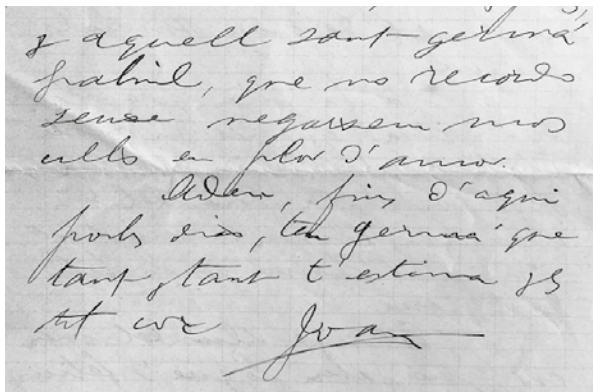 y aquell sant germá
Gabriel, que no recordo
sense negarsem mos
ulls en plor d'amor.
Adeu, fins d'aqui
pochs dies, ton germá que
tant, tant t'estima ab
tot cor Joan